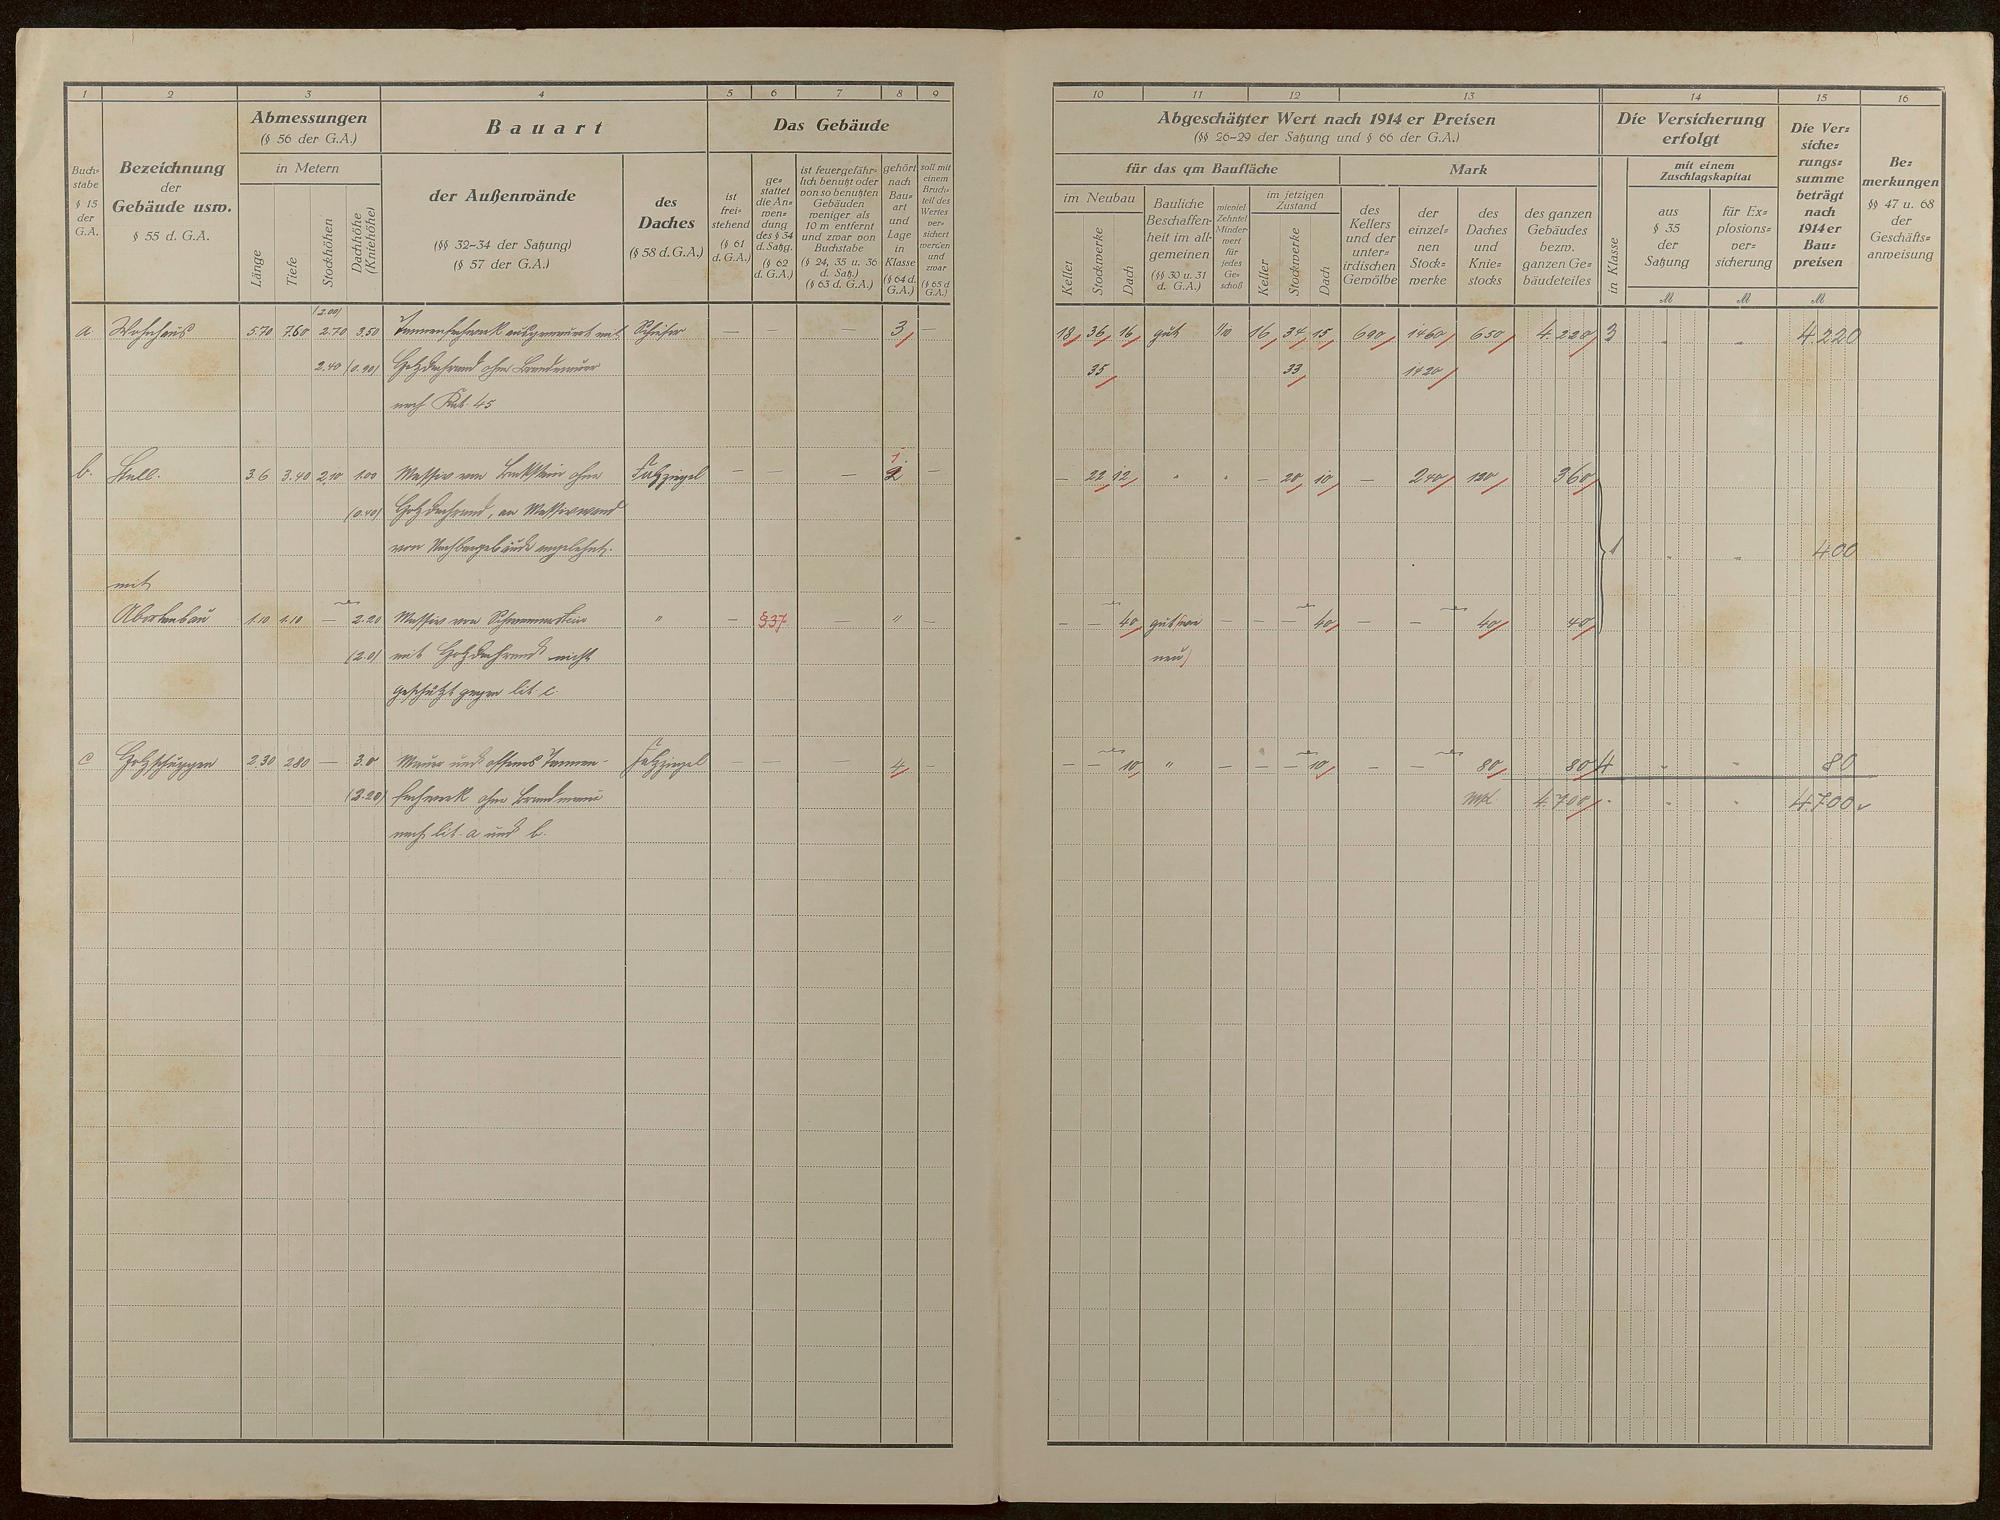 1 2 3 4 5 6 7 8 9
Buch-
stabe
§ 15
der
G.A.
Bezeichnung
der
Gebäude usw.
§ 55 d. G.A.
Abmessungen
(§ 56 der G.A.)
in Metern
Länge
Tiefe
Stockhöhen
Dachhöhe
(Kniehöhe)
Bauart
der Außenwände
(§§ 32-34 der Satzung)
(§ 57 der G.A.)
des
Daches
(§ 58 d. G.A.)
Das Gebäude
ist
frei-
stehend
(§ 61
d. G.A.)
ge-
stattet
die An-
wen-
dung
des § 34
d. Satzg.
(§ 62
d. G.A.)
ist feuergefähr-
lich benutzt oder
von so benutzten
Gebäuden
weniger als
10 m entfernt
und zwar von
Buchstabe
(§ 24, 35 u. 36
d. Satz.)
(§ 63 d. G.A.)
gehört
nach
Bau-
art
und
Lage
in
Klasse
(§ 64 d.
G.A.)
soll mit
einem
Bruch-
teil des
Wertes
ver-
sichert
werden
und
zwar
(§ 65 d
G.A.)
(2.00)
a Wohnhaus 5.70 7.60 2.70 3.50 Tannenfachwerk ausgemauert mit Schiefer — — — 3 —
2.40 (0.90) Holzdachrand ohne Brandmauer
nach Kat. 45
1.
b. Stall. 3.6 3.40 2.10 1.00 Massiv von Bruchstein ohne Falzziegel — — — 2 —
(0.40) Holzdachrand, an Massivwand
von Nachbargebäude angelehnt.
mit
Abortanbau 1.10 1.10 — 2.20 Massiv von Schwemmstein " — § 37 — " —
(2.0) mit Holzdachrand nicht
geschützt gegen lit. c.
c Holzschuppen 2.30 2.80 — 3.0 Mauer und offenes Tannen- Falzziegel — — — 4 —
(2.20) fachwerk ohne Brandmauer
nach lit. a und b.
10 11 12 13 14 15 16
Abgeschätzter Wert nach 1914 er Preisen
(§§ 26-29 der Satzung und § 66 der G.A.)
für das qm Baufläche
im Neubau
Keller
Stockwerke
Dach
Bauliche
Beschaffen-
heit im all-
gemeinen
(§§ 30 u. 31
d. G.A.)
wieviel
Zehntel
Minder-
wert
für
jedes
Ge-
schoß
im jetzigen
Zustand
Keller
Stockwerke
Dach
Mark
des
Kellers
und der
unter-
irdischen
Gewölbe
der
einzel-
nen
Stock-
werke
des
Daches
und
Knie-
stocks
des ganzen
Gebäudes
bezw.
ganzen Ge-
bäudeteiles
Die Versicherung
erfolgt
in Klasse
mit einem
Zuschlagskapital
aus
§ 35
der
Satzung
für Ex-
plosions-
ver-
sicherung
Die Ver-
siche-
rungs-
summe
beträgt
nach
1914 er
Bau-
preisen
Be-
merkungen
§§ 47 u. 68
der
Geschäfts-
anweisung
M M M
18 36 16 gut 1/10 16 34 15 690 1460 650 4.220 3 " " 4.220
35 33 1420
— 22 12 " " — 20 10 — 240 120 360
1 " " 400
— — 40 gut (wie — — — 40 — — 40 40
neu)
— — 10 " — — — 10 — — 80 80 4 " " 80
4.700 " " 4.700